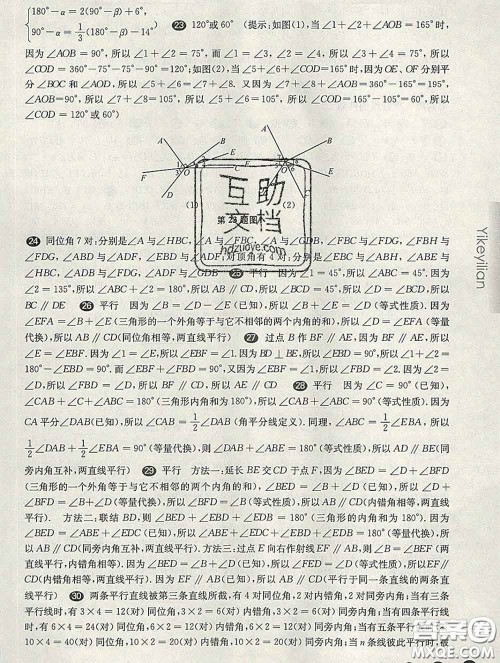 180°－α＝2(90°－β)＋6°,
90°－α＝1/3(180°－β)－14°
23 120°或60° (提示:如图(1),当∠1＋∠2＋∠AOB＝165°时,
因为∠AOB＝90°,所以∠1＋∠2＝75°,而∠1＝∠3,∠2＝∠4,所以∠3＋∠4＝75°,所以
∠COD＝360°－75°－75°－90°＝120°;如图(2),当∠5＋∠6＋∠COD＝165°时,因为OE、OF分别平
分∠BOC和∠AOD,所以∠5＋∠6＝∠7＋∠8. 又因为∠7＋∠8＋∠AOB＝360°－165°＝195°,
∠AOB＝90°,所以∠7＋∠8＝105°,所以∠5＋∠6＝105°,所以∠COD＝165°－105°＝60°,所以
∠COD＝120°或60°)
A B E F
(1) (2)
互助
文档
hdzuoye.com
24 同位角7对,分别是∠A与∠HBC,
对顶角有4对,分别是∠EBC与∠ABH、
25 平行 因为∠1＝45°,所以∠ABC＝45°. 因为
∠2＝135°,所以∠ABC＋∠2＝180°,所以AB∥CD,所以∠BCD＝∠ABC＝45°. 因为∠D＝45°,所以∠BCD＝∠D,所以
BC∥DE 26 平行 因为∠D－∠E＝∠B(已知),所以∠D＝∠B＋∠E(等式性质). 因为
∠EFA＝∠B＋∠E(三角形的一个外角等于与它不相邻的两个内角的和),所以∠D＝∠EFA(等量
代换),所以AB∥CD(同位角相等,两直线平行) 27 过点B作BF∥AE,所以
∠E＝∠EBF. 因为∠1＝∠E,所以∠EBF＝∠1. 因为BD⊥BE,所以∠EBD＝90°,所以∠1＋∠2＝
180°－∠EBD＝90°,而∠EBF＋∠FBD＝90°,又因为∠EBF＝∠1,所以∠FBD＝∠2. 因为∠2＝∠D,所
以∠FBD＝∠D,所以BF∥CD,所以AE∥CD 28 平行 因为∠C＝90°(已知),
∠C＋∠CAB＋∠ABC＝180°(三角形内角和为180°),所以∠CAB＋∠ABC＝90°(等式性质). 因为
CA平分∠DAB(已知),所以∠CAB＝1/2∠DAB(角平分线定义). 同理,∠ABC＝1/2∠EBA,所以
1/2∠DAB＋1/2∠EBA＝90°(等量代换),所以∠DAB＋∠EBA＝180°(等式性质),所以AD∥BE(同
旁内角互补,两直线平行) 29 平行 方法一:延长BE交CD于点F,因为∠BED＝∠D＋∠EFD
(三角形的一个外角等于与它不相邻的两个内角的和),∠BED＝∠B＋∠D(已知),所以∠D＋
∠EFD＝∠B＋∠D(等量代换),所以∠EFD＝∠B(等式性质),所以AB∥CD(内错角相等,两直线平
行). 方法二:联结BD,则∠BED＋∠EBD＋∠EDB＝180°(三角形的内角和为180°). 因为
∠BED＝∠ABE＋∠EDC(已知),所以∠ABE＋∠EDC＋∠EBD＋∠EDB＝180°(等量代换),所
以AB∥CD(同旁内角互补,两直线平行). 方法三:过点E向右作射线EF∥AB,则∠B＝∠BEF(两
直线平行,内错角相等). 因为∠BED＝∠B＋∠D(已知),所以∠D＝∠DEF,所以EF∥CD(内错角相
等,两直线平行). 因为EF∥AB(已知),所以AB∥CD(平行于同一条直线的两条直
线平行) 30 两条平行直线被第三条直线所截,有4对同位角,2对内错角,2对同旁内角;当有三条
平行线时,有3×4＝12(对)同位角,3×2＝6(对)内错角,3×2＝6(对)同旁内角;当有四条平行线
时,有6×4＝24(对)同位角,6×2＝12(对)内错角,6×2＝12(对)同旁内角;当有五条平行线时,有
10×4＝40(对)同位角,10×2＝20(对)内错角,10×2＝20(对)同旁内角;当n条线彼此平行时,被
Yikeyilian
答案圈
MXQE.COM